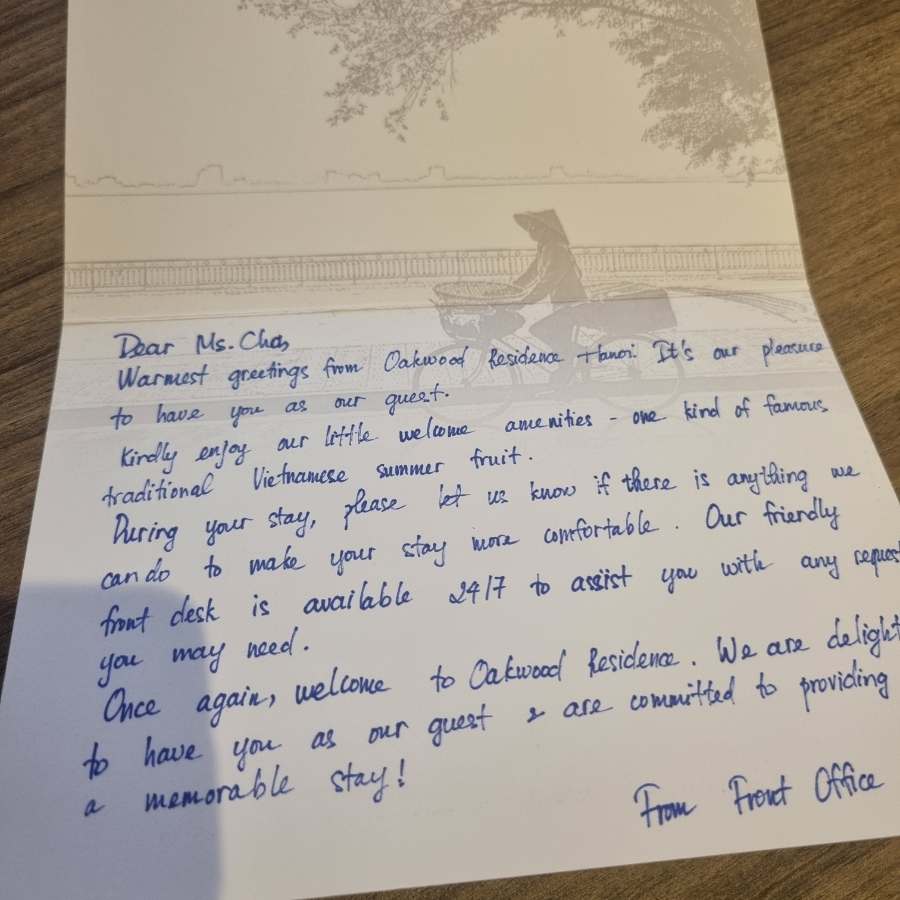 Dear Ms. Cha,
Warmest greetings from Oakwood Residence Hanoi. It's our pleasure
to have you as our guest.
Kindly enjoy our little welcome amenities - one kind of famous
traditional Vietnamese summer fruit.
During your stay, please let us know if there is anything we
can do to make your stay more comfortable. Our friendly
front desk is available 24/7 to assist you with any reques
you may need.
Once again, welcome to Oakwood Residence. We are delight
to have you as our guest & are committed to providing
a memorable stay!
From Front Office